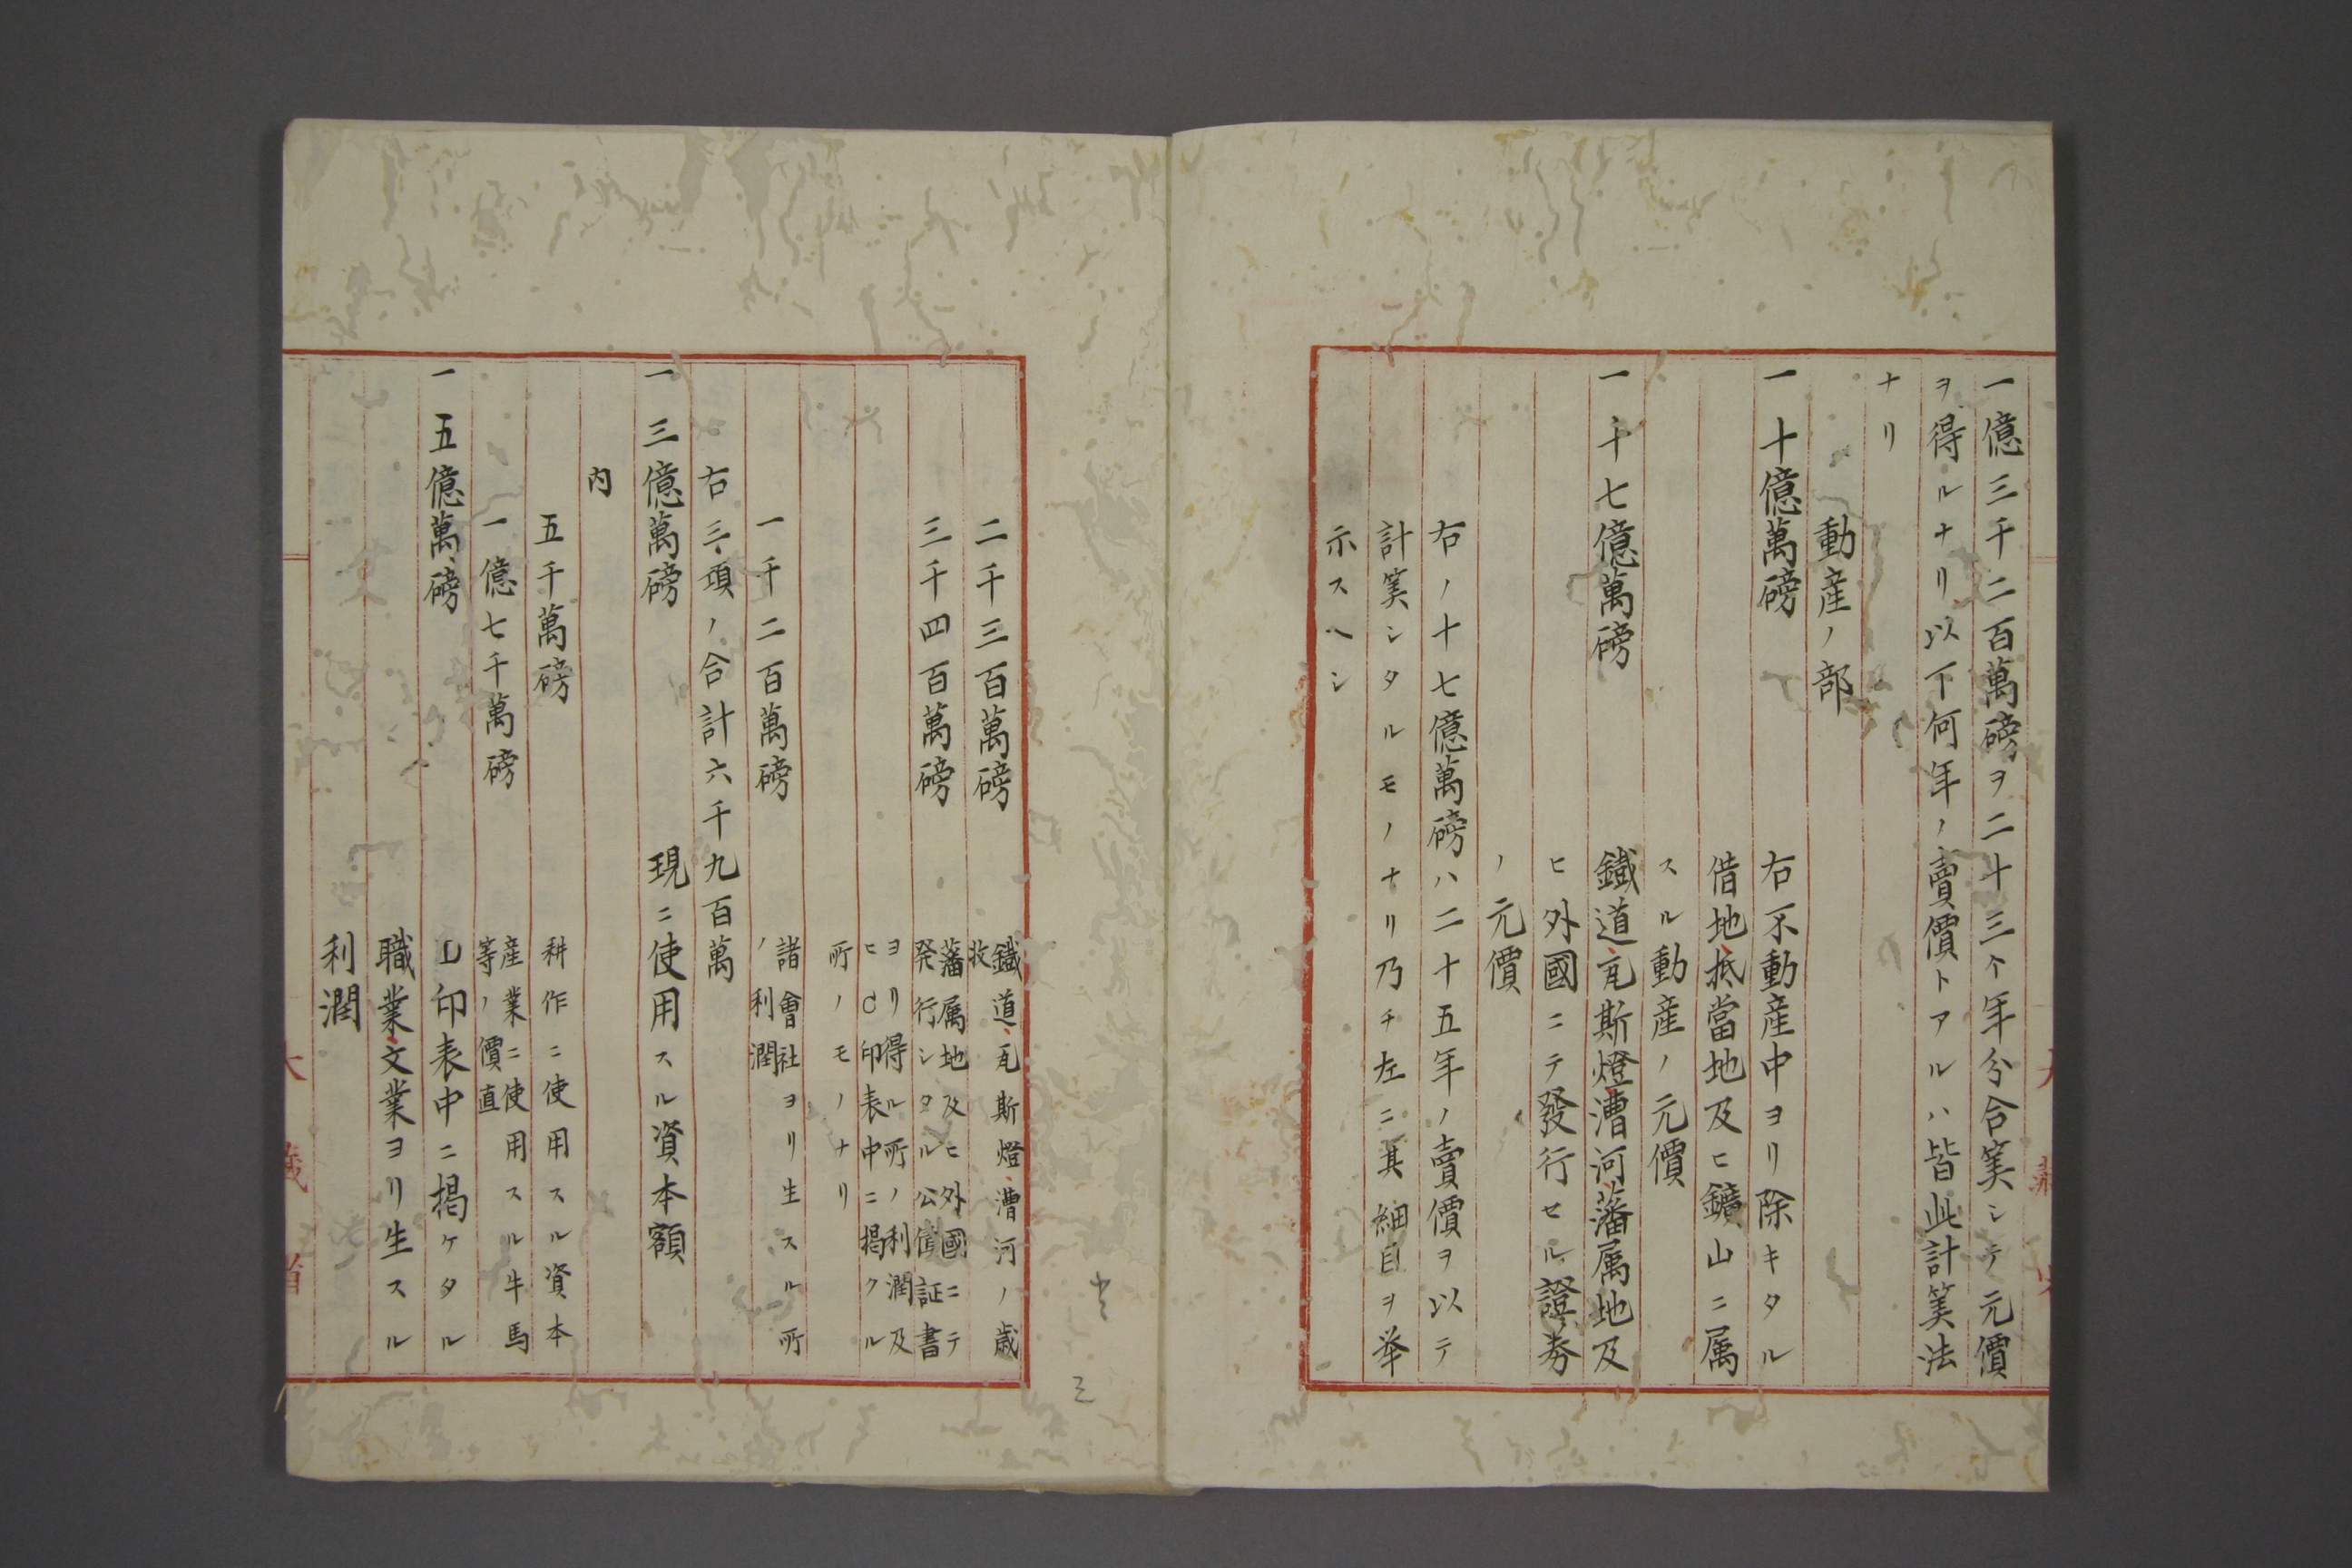 一億三千二百萬磅ヲ二十三ケ年分合筭シテ元價
ヲ得ルナリ以下何年ノ賣價トアルハ皆此計筭法
ナリ
動産ノ部
一十億萬磅
右不動産中ヨリ除キタル
借地抵當地及ヒ鑛山ニ属
スル動産ノ元價
一十七億萬磅
鐵道瓦斯燈漕河藩属地及
ヒ外國ニテ發行セル證券
ノ元價
右ノ十七億萬磅ハ二十五年ノ賣價ヲ以テ
計筭シタルモノナリ乃チ左ニ其細目ヲ挙
示スヘシ
二千三百萬磅
鐵道瓦斯燈漕河ノ歳
收
三千四百萬磅
藩属地及ヒ外國ニテ
発行シタル公債証書
ヨリ得ル所ノ利潤及
ヒC印表中ニ掲クル
所ノモノナリ
一千二百萬磅
諸會社ヨリ生スル所
ノ利潤
右三項ノ合計六千九百萬
一三億萬磅
現ニ使用スル資本額
内
五千萬磅
耕作ニ使用スル資本
一億七千萬磅
産業ニ使用スル牛馬
等ノ價直
一五億萬磅
D印表中ニ掲ケタル
職業文業ヨリ生スル
利潤
大藏省
三